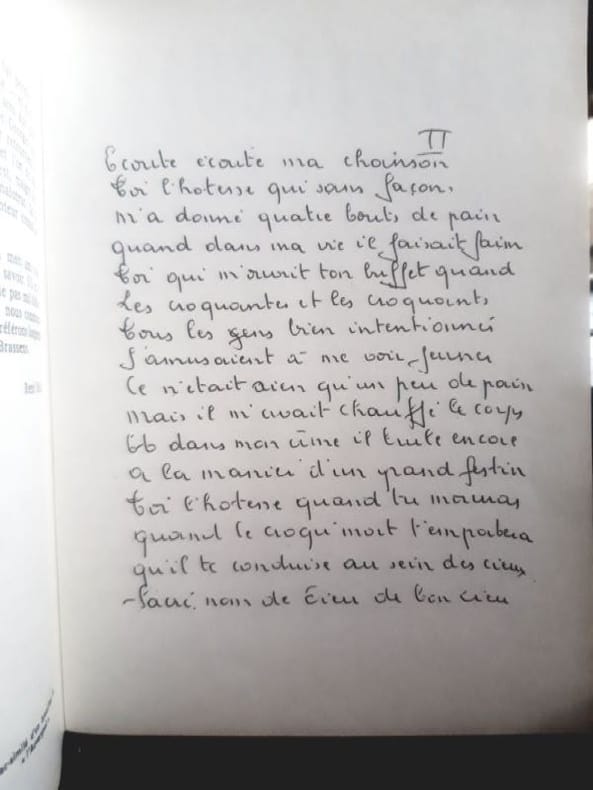 savoir.
nous
Brassens.
II
Ecoute écoute ma chanson
toi l'hotesse qui sans façon,
m'a donné quatre bouts de pain
quand dans ma vie il faisait faim
toi qui m'ouvrit ton buffet quand
les croquantes et les croquants
tous les gens bien intentionnés
s'amusaient à me voir jeuner
Ce n'était rien qu'un peu de pain
mais il m'avait chauffé le corps
Et dans mon âme il brule encore
a la manièr' d'un grand festin
toi l'hotesse quand tu mourras
quand le croqu'mort t'emportera
qu'il te conduise au sein des cieux
-Sacré nom de Dieu de bon dieu